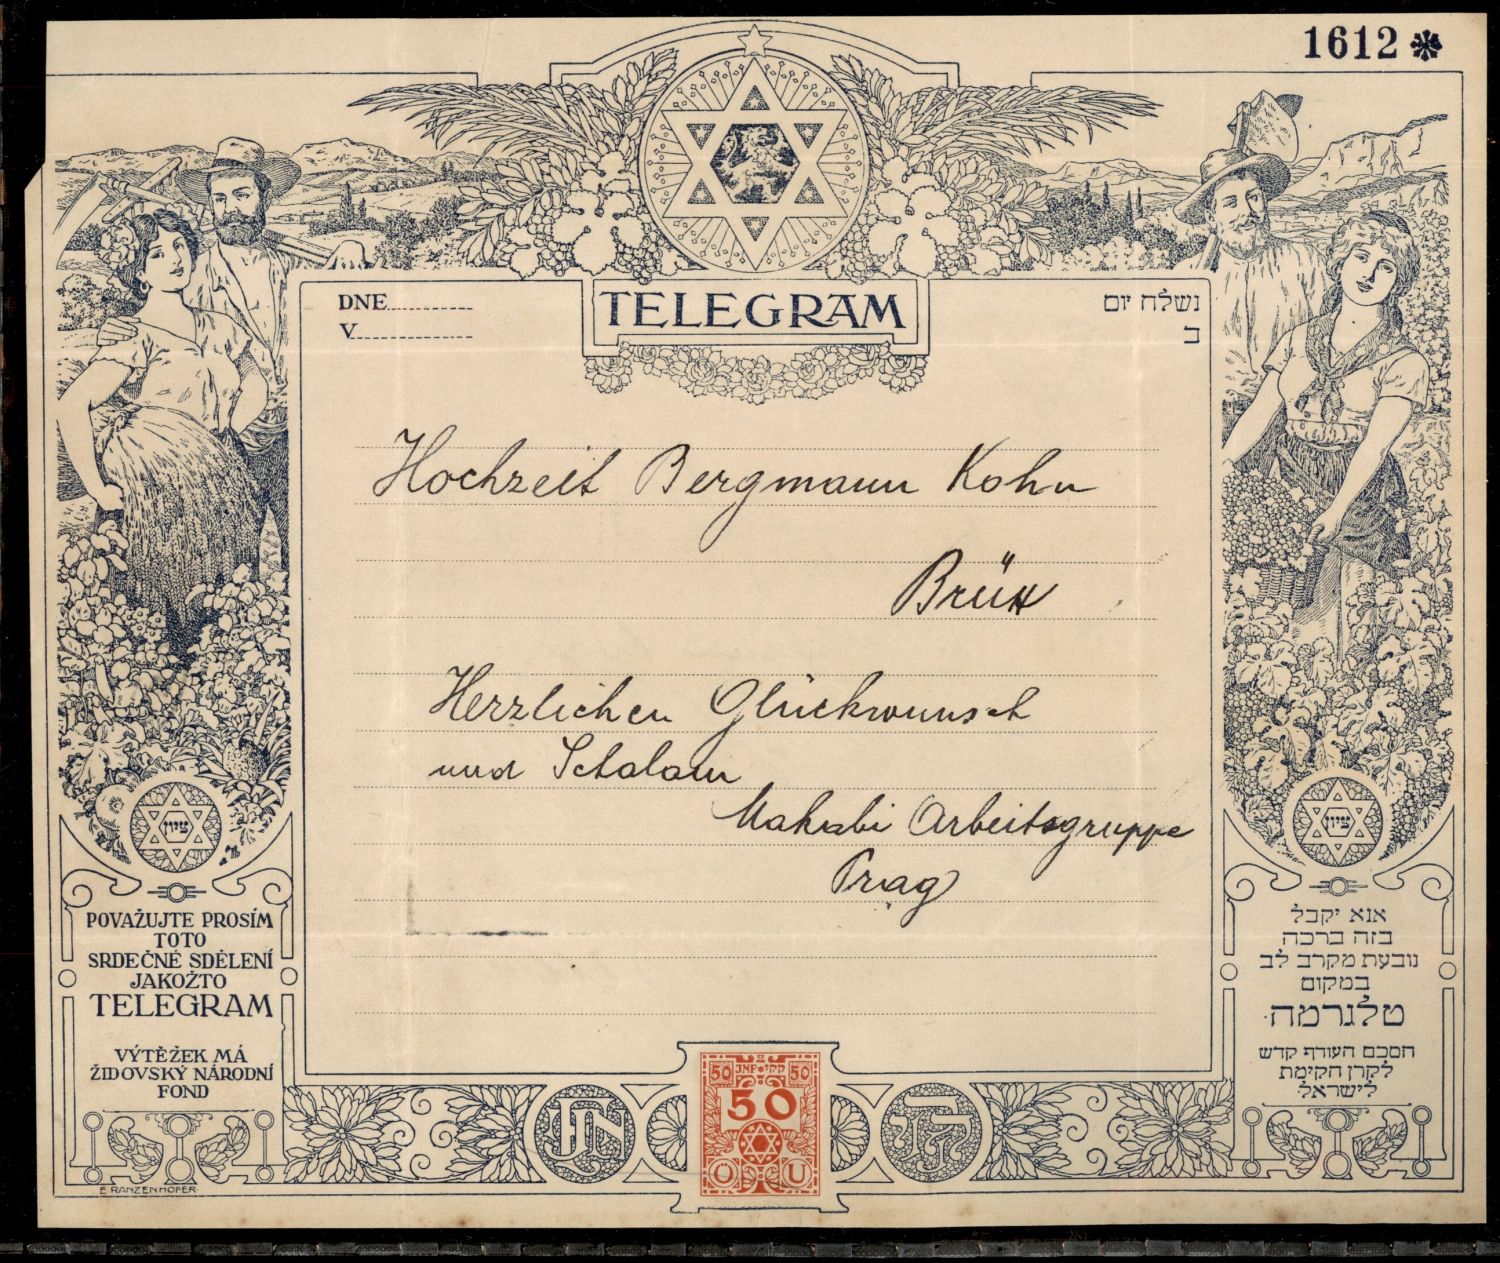 1612
TELEGRAM
DNE
V
נשלח יום
ב
Hochzeit Bergmann Kohn
Brüx
Herzlichen Glückwunsch
und Schalom
Makabi Arbeitsgruppe
Prag
ציון
POVAŽUJTE PROSÍM
TOTO
SRDEČNÉ SDĚLENÍ
JAKOŽTO
TELEGRAM
VÝTĚŽEK MÁ
ŽIDOVSKÝ NÁRODNÍ
FOND
E RANZENHOFER
ציון
אנא יקבל
בזה ברכה
נובעת מקרב לב
במקום
טלגרמה
הסכם העודף קדש
לקרן הקימת
לישראל
JNF
50 JNF קקי 50
50
O U